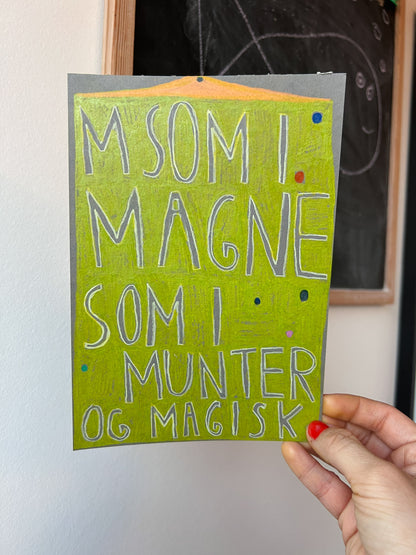 M SOM I
MAGNE
SOM I
MUNTER
OG MAGISK